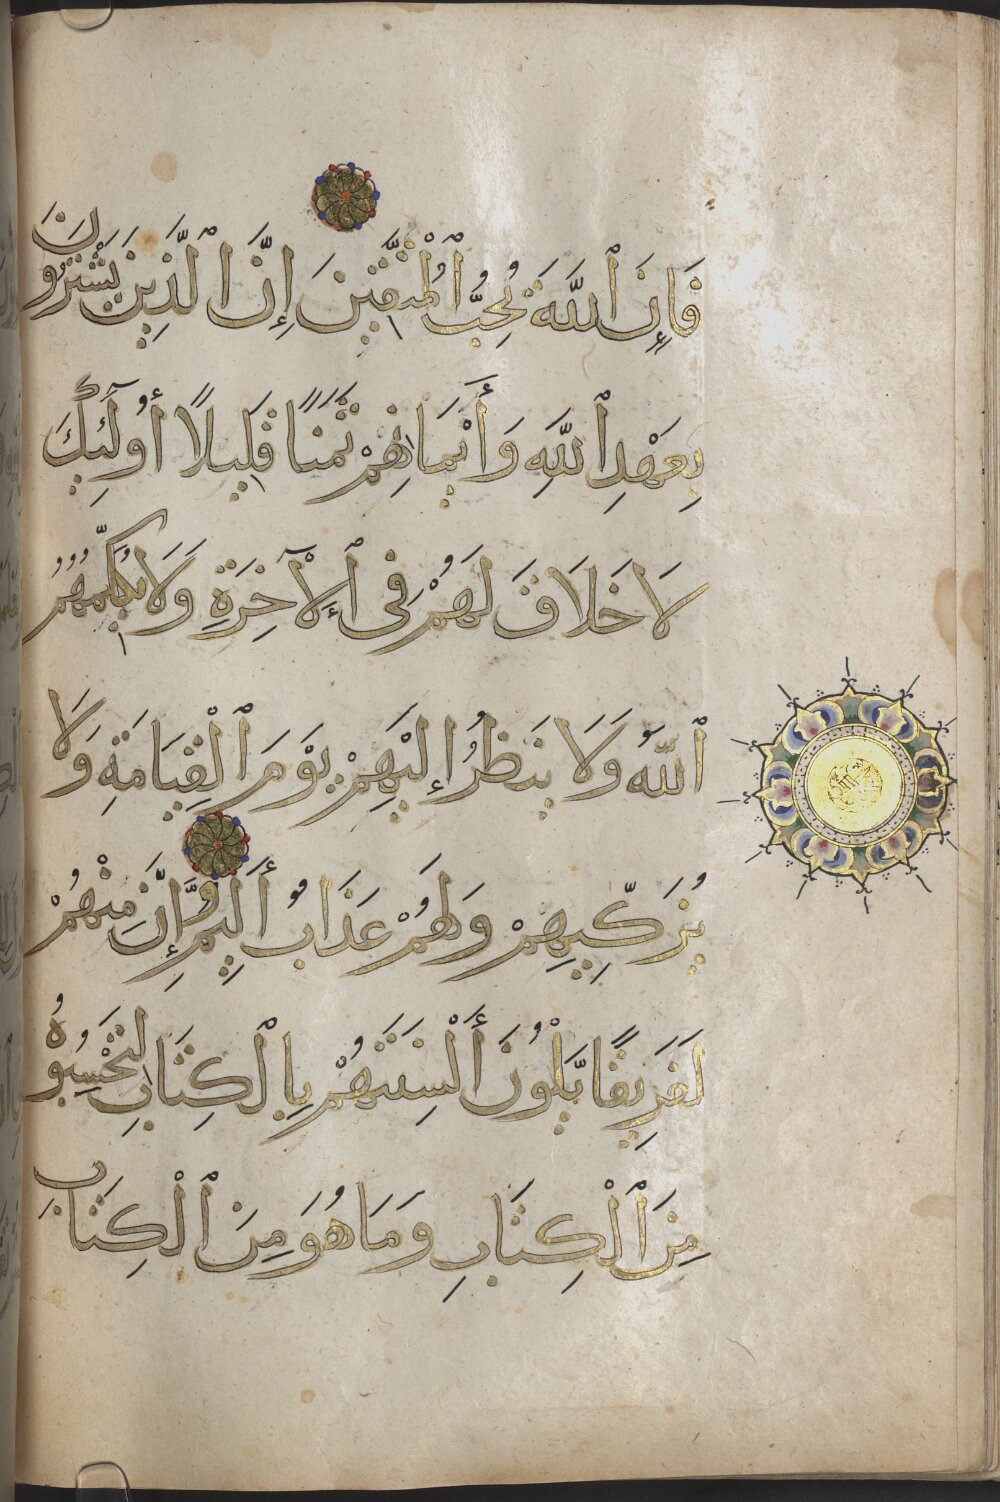 فَإِنَّ ٱللَّهَ يُحِبُّ ٱلْمُتَّقِينَ إِنَّ ٱلَّذِينَ يَشْتَرُونَ
بِعَهْدِ ٱللَّهِ وَأَيْمَانِهِمْ ثَمَنًا قَلِيلًا أُولَٰئِكَ
لَا خَلَاقَ لَهُمْ فِي ٱلْآخِرَةِ وَلَا يُكَلِّمُهُمُ
ٱللَّهُ وَلَا يَنظُرُ إِلَيْهِمْ يَوْمَ ٱلْقِيَامَةِ وَلَا
يُزَكِّيهِمْ وَلَهُمْ عَذَابٌ أَلِيمٌ وَإِنَّ مِنْهُمْ
لَفَرِيقًا يَلْوُونَ أَلْسِنَتَهُمْ بِٱلْكِتَابِ لِتَحْسِبُوهُ
مِنَ ٱلْكِتَابِ وَمَا هُوَ مِنَ ٱلْكِتَابِ